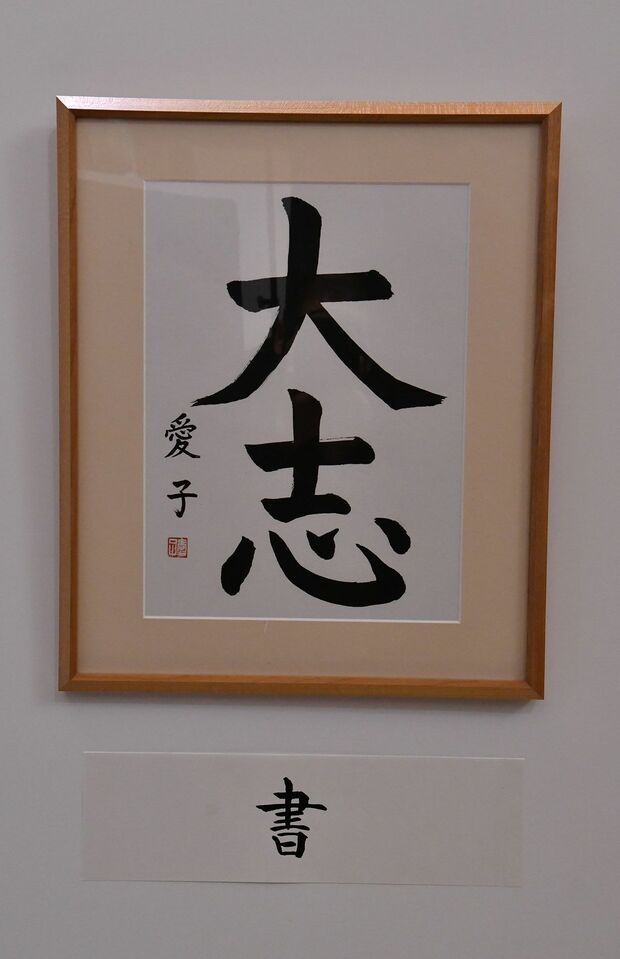 大志
愛子
書